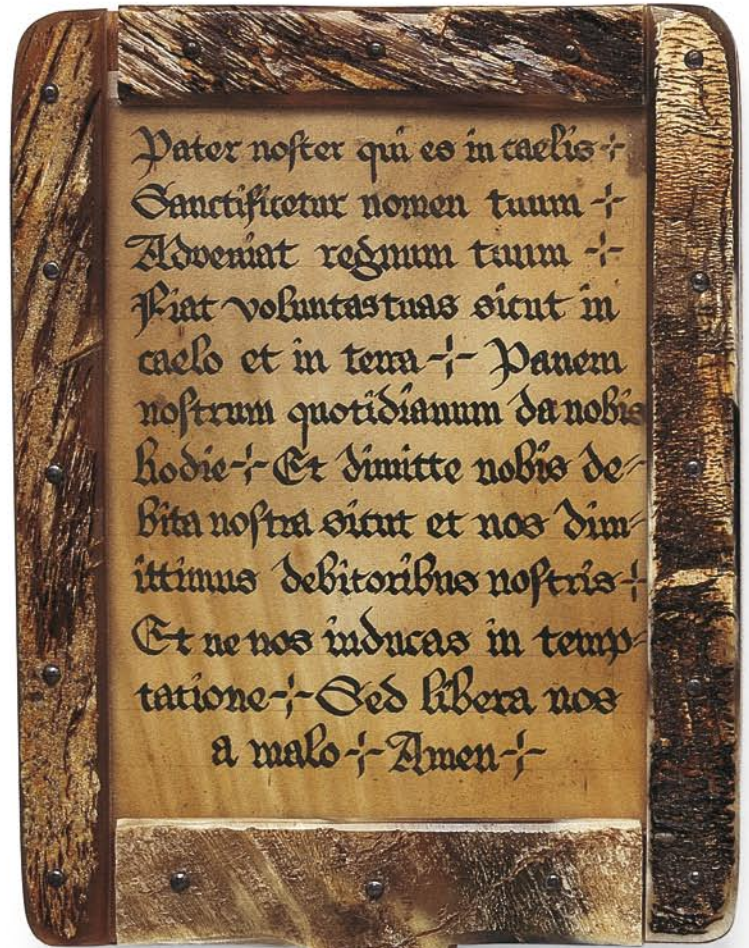 Pater noster qui es in caelis -¦-
Sanctificetur nomen tuum -¦-
Adveniat regnum tuum -¦-
Fiat voluntastuas sicut in
caelo et in terra -¦- Panem
nostrum quotidianum da nobis
hodie -¦- Et dimitte nobis de-
bita nostra sicut et nos dim-
ittimus debitoribus nostris -¦-
Et ne nos inducas in temp-
tatione -¦- Sed libera nos
a malo -¦- Amen -¦-